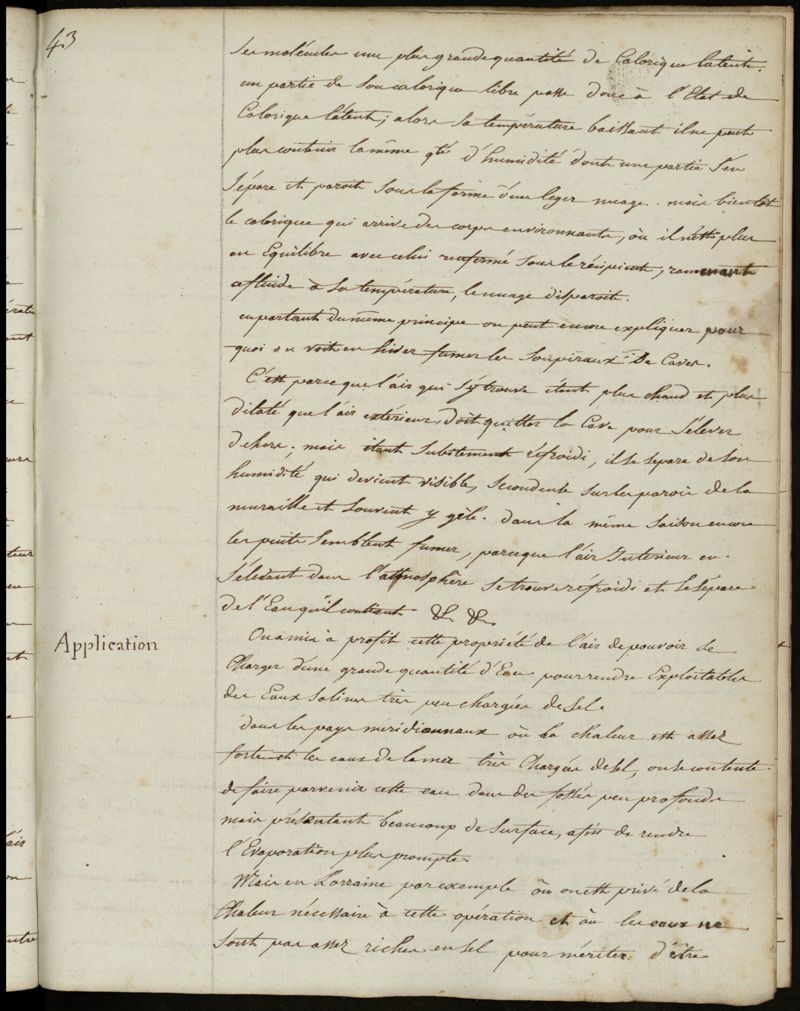 43
ses molécules une plus grande quantité de Calorique latent.
une partie de son calorique libre passe donc à l'Etat de
Calorique latent; alors sa température baissant il ne peut
plus contenir la même qté d'humidité dont une partie s'en
sépare et paroit sous la forme d'un leger nuage. mais bientot
le calorique qui arrive des corps environnants, où il n'est plus
en Equilibre avec celui renfermé sous le récipient, ramenant
ce fluide à sa température, le nuage disparoit.
en partant du même principe on peut encore expliquer pour
quoi on voit en hiver fumer les Soupiraux De Caves.
C'est parce que l'air qui s'y trouve étant plus chaud et plus
dilaté que l'air extérieur, doit quitter la Cave pour s'élever
dehors; mais étant subitement réfroidi, il se separe de son
humidité qui devient visible, se condense sur les parois de la
muraille et souvent y gèle. dans la même saison encore
les puits semblent fumer, parceque l'air Interieur en
s'élevant dans l'atmosphère se trouve réfroidi et se sépare
de l'Eau qu'il contient &c &c.
Application
On a mis à profit cette propriété de l'air de pouvoir se
Charger d'une grande quantité d'Eau pour rendre Exploitables
des Eaux Salines très peu chargées de sel.
dans les pays méridionnaux où la chaleur est assez
forte et les eaux de la mer très Chargées de sel, on se contente
de faire parvenir cette eau dans des fossés peu profonds
mais présentant beaucoup de surface, afin de rendre
l'Evaporation plus prompte.
Mais en Lorraine par exemple où on est privé de la
Chaleur nécessaire à cette opération et où les eaux ne
sont pas assez riches en sel pour mériter d'être